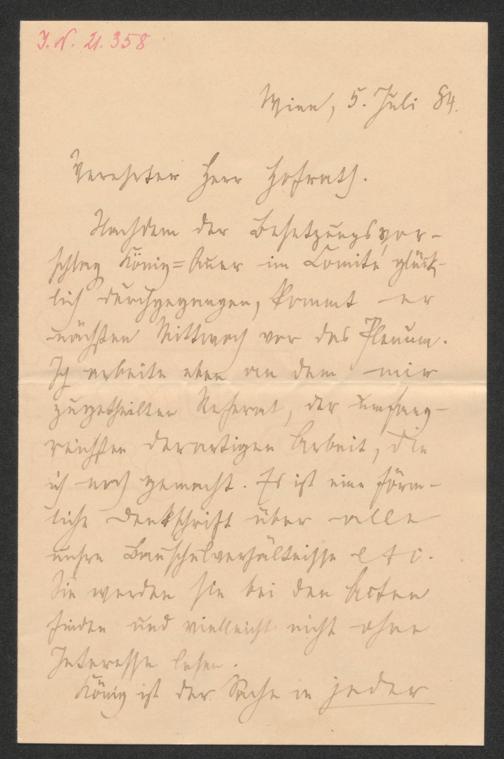 J. N. 21.358
Wien, 5. Juli 84.
Verehrter Herr Hofrath.
Nachdem der Besetzungsvor-
schlag König=Bauer im Comité glück-
lich durchgegangen, kommt er
nächsten Mittwoch vor das Plenum.
Ich arbeite eben an dem mir
zugetheilten Referat, der umfang-
reichsten derartigen Arbeit, die
ich noch gemacht. Es ist eine förm-
liche Denkschrift über alle
unsre Bauschulverhältnisse etc.
Sie werden sie bei den Acten
finden und vielleicht nicht ohne
Interesse lesen.
König ist der Sache in jeder